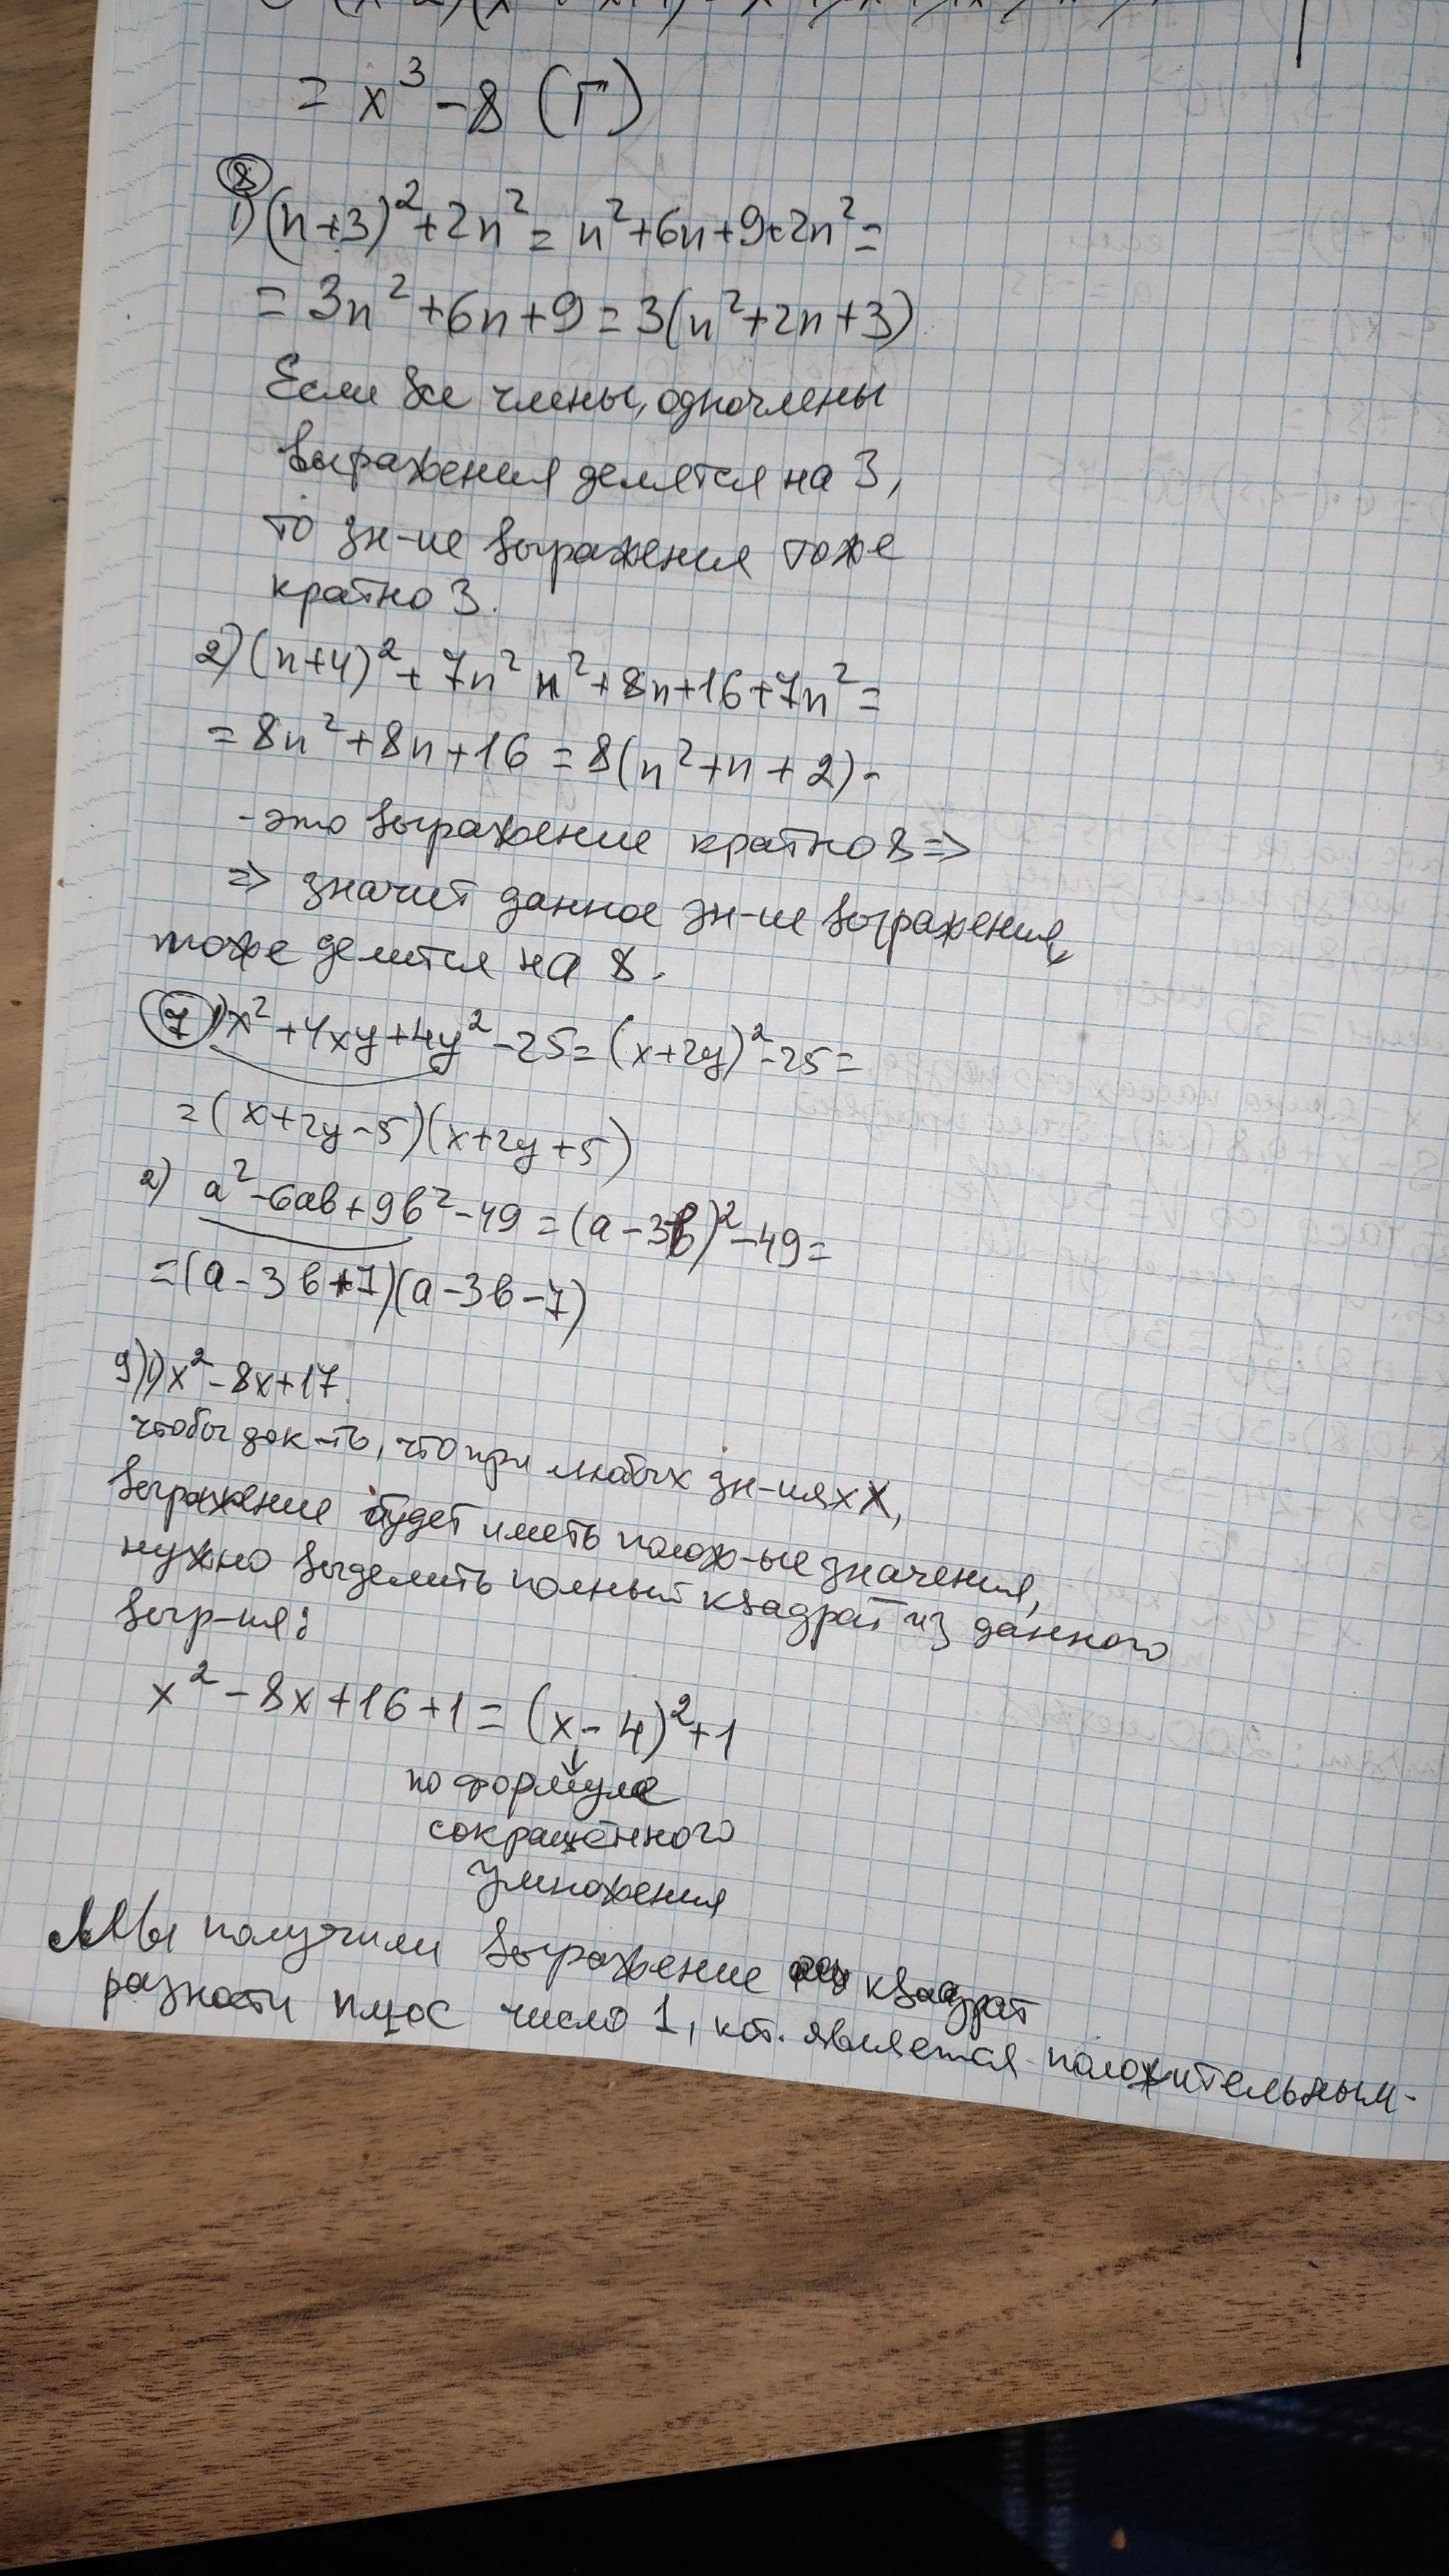 = x³ - 8 (Г)
8
1) (n+3)² + 2n² = n² + 6n + 9 + 2n² =
= 3n² + 6n + 9 = 3(n² + 2n + 3)
Если все члены, одночлены
выражения делятся на 3,
то зн-ие выражения тоже
кратно 3.
2) (n+4)² + 7n² n² + 8n + 16 + 7n² =
= 8n² + 8n + 16 = 8(n² + n + 2) -
- это выражение кратно 8 =>
=> значит данное зн-ие выражения,
тоже делится на 8.
7 1) x² + 4xy + 4y² - 25 = (x+2y)² - 25 =
= (x+2y-5)(x+2y+5)
2) a² - 6ab + 9b² - 49 = (a - 3b)² - 49 =
= (a - 3b + 7)(a - 3b - 7)
9) 1) x² - 8x + 17
чтобы док-ть, что при любых зн-иях x,
выражение будет иметь полож-ые значения,
нужно выделить полный квадрат из данного
выр-ия:
x² - 8x + 16 + 1 = (x - 4)² + 1
↓
по формуле
сокращенного
умножения
Мы получили выражение квадрат
разности плюс число 1, кот. является положительным.